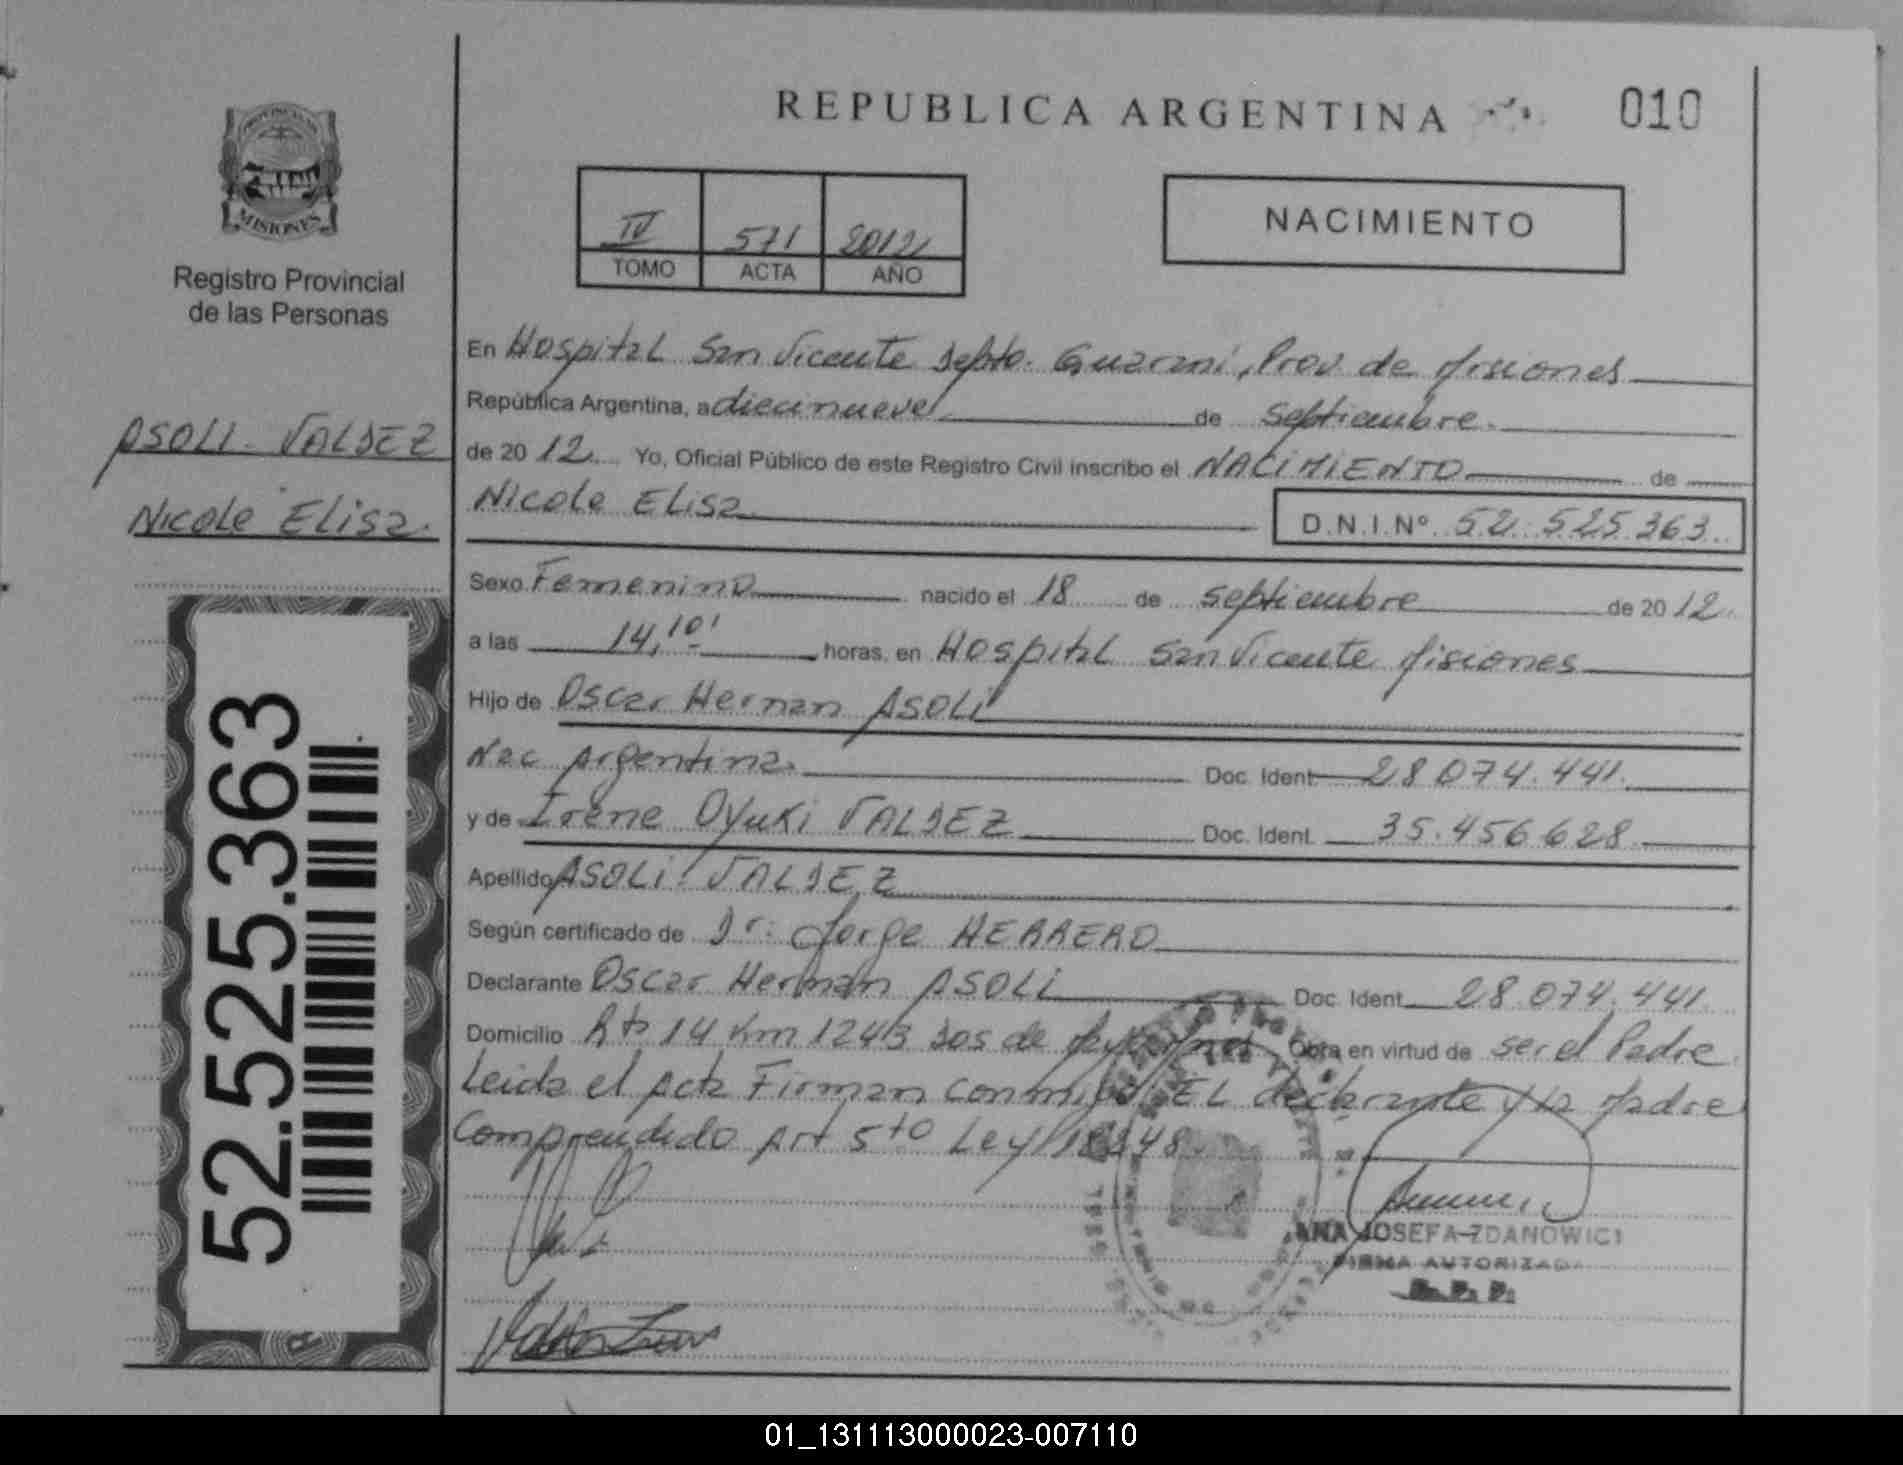 REPUBLICA ARGENTINA
010
PROVINCIA DE
MISIONES
Registro Provincial
de las Personas
IV 571 2012
TOMO ACTA AÑO
NACIMIENTO
ASOLI - VALDEZ
Nicole Elisa.
52.525.363
En Hospital San Vicente Depto. Guarani, Prov de Misiones
República Argentina, a diecinueve de Septiembre.
de 2012 Yo, Oficial Público de este Registro Civil inscribo el NACIMIENTO de
Nicole Elisa D.N.I.Nº 52.525.363
Sexo Femenino nacido el 18 de septiembre de 2012.
a las 14,10' horas, en Hospital San Vicente Misiones
Hijo de Oscar Hernan ASOLI
Nac Argentina. Doc. Ident 28.074.441.
y de Irene Oyuki VALDEZ Doc. Ident. 35.456.628
Apellido ASOLI - VALDEZ
Según certificado de Dr: Jorge HERRERO
Declarante Oscar Hernan ASOLI Doc. Ident. 28.074.441.
Domicilio Rta 14 Km 1243 Dos de Mayo Obra en virtud de ser el Padre.
Leida el Acta Firman conmigo EL declarante y la Madre
Comprendido Art 5to Ley 18248.
ANA JOSEFA ZDANOWICZ
FIRMA AUTORIZADA
R. P. P.
01_131113000023-007110